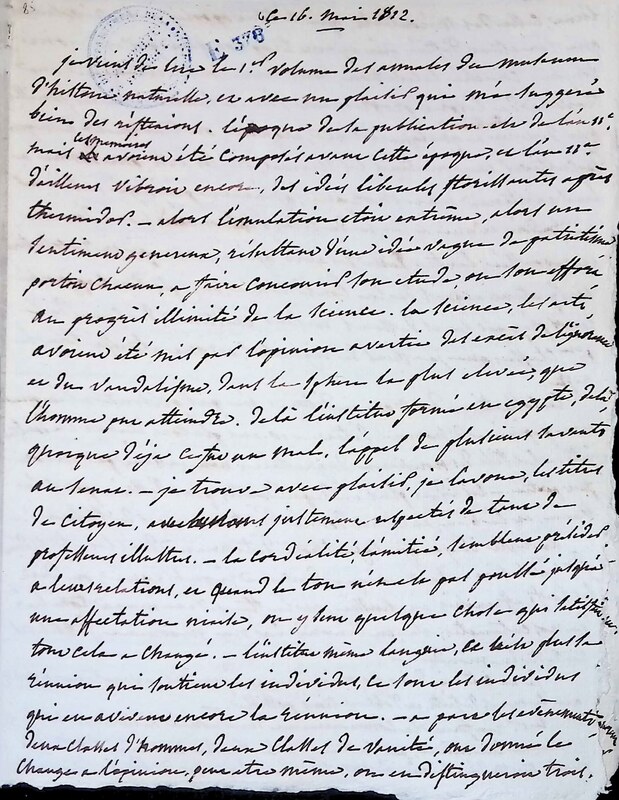 ce 16. mai 1812.
E 378
je viens de lire le 1.er volume des annales du museum
d'histoire naturelle, et avec un plaisir qui m'a suggéré
bien des réflexions. l'époque de la publication est de l'an 11e
mais les premiers avoient été composés avant cette époque, et l'an 11e
d'ailleurs vibroit encore, des idées liberales florissantes après
thermidor. – alors l'emulation etoit extrême, alors un
sentiment genereux, résultant d'une idée vague de patriotisme
portoit chacun, a faire concourir son etude, ou son effort
au progrès illimité de la science. la science, les arts,
avoient été mis par l'opinion avertie des excès de l'ignorance
et du vandalisme, dans la sphere la plus elevée, que
l'homme put atteindre. de là l'institut formé en egypte, de là,
quoique déja ce fut un mal, l'appel de plusieurs savants
au senat. – je trouve avec plaisir, je l'avoue, les titres
de citoyen, justement respectés de tant de
professeurs illustres. – la cordialité, l'amitié, semblent présider
a leurs relations, et quand le ton n'en seroit pas poussé jusqu'à
une affectation, on y sent quelque chose qui
tout cela a changé. – l'institut même languit, ce n'est plus la
réunion qui soutient les individus, ce sont les individus
qui en avivent encore la réunion. – a part les évènements
deux classes d'hommes, deux classes de vanité, ont donné le
change a l'opinion, peut etre même, on en distingueroit trois.